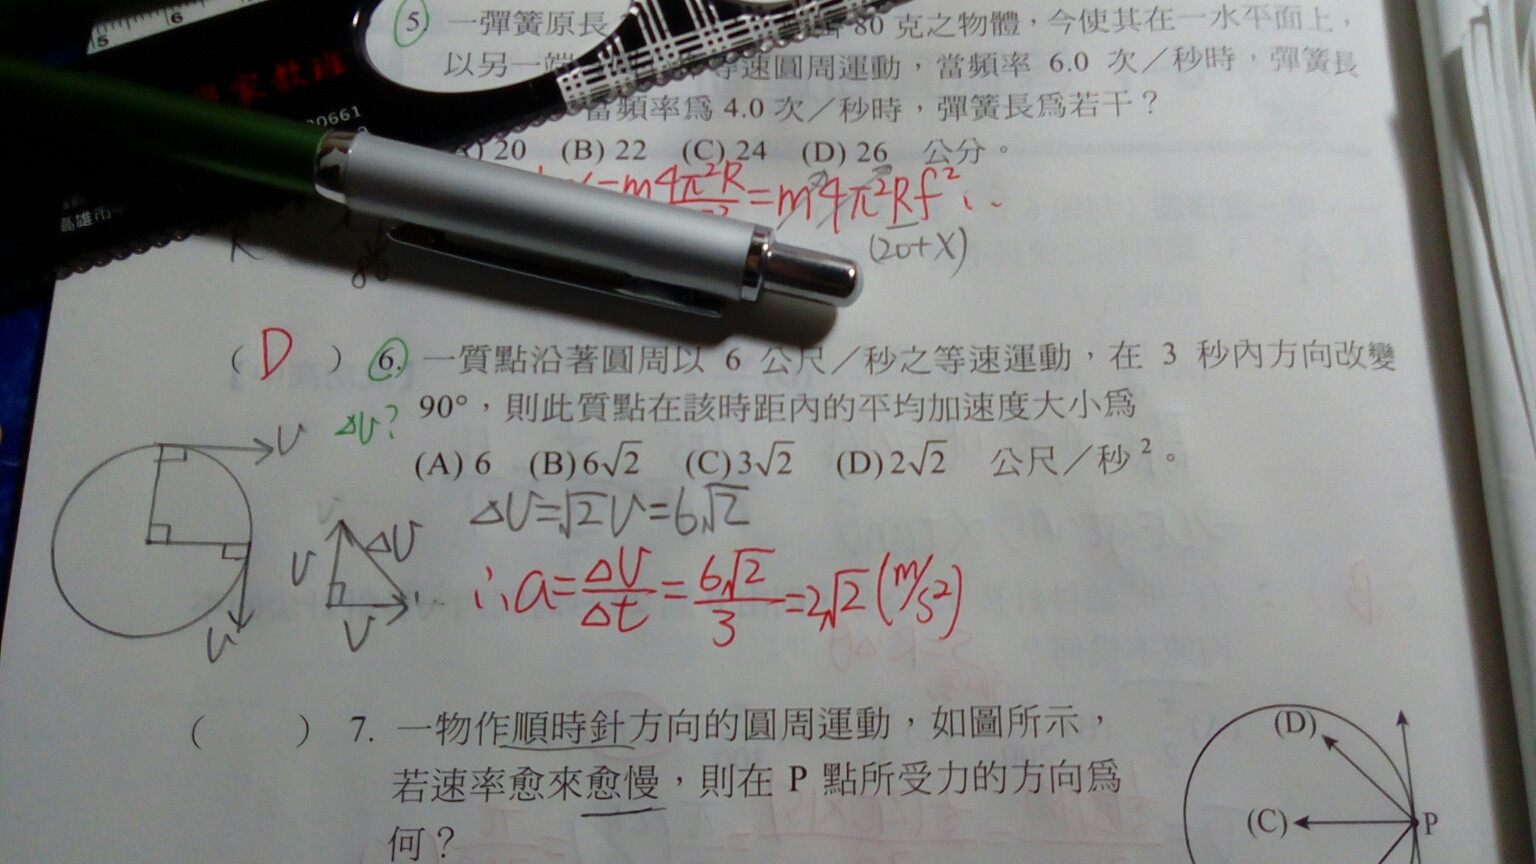 5
6
5. 一彈簧原長 80 克之物體，今使其在一水平面上，
以另一端 等速圓周運動，當頻率 6.0 次／秒時，彈簧長
當頻率爲 4.0 次／秒時，彈簧長爲若干？
(A) 20 (B) 22 (C) 24 (D) 26 公分。
=m4π²R =m4π²Rf²
(20+X)
R
學家教班
00661
高雄市
( D ) 6. 一質點沿著圓周以 6 公尺／秒之等速運動，在 3 秒內方向改變
90°，則此質點在該時距內的平均加速度大小爲
ΔV?
(A) 6 (B) 6√2 (C) 3√2 (D) 2√2 公尺／秒²。
V
V
ΔV=√2V=6√2
V
ΔV
V
∴a=ΔV/Δt=6√2/3=2√2(m/s²)
( ) 7. 一物作順時針方向的圓周運動，如圖所示，
若速率愈來愈慢，則在 P 點所受力的方向爲
何？
(D)
(C)
P